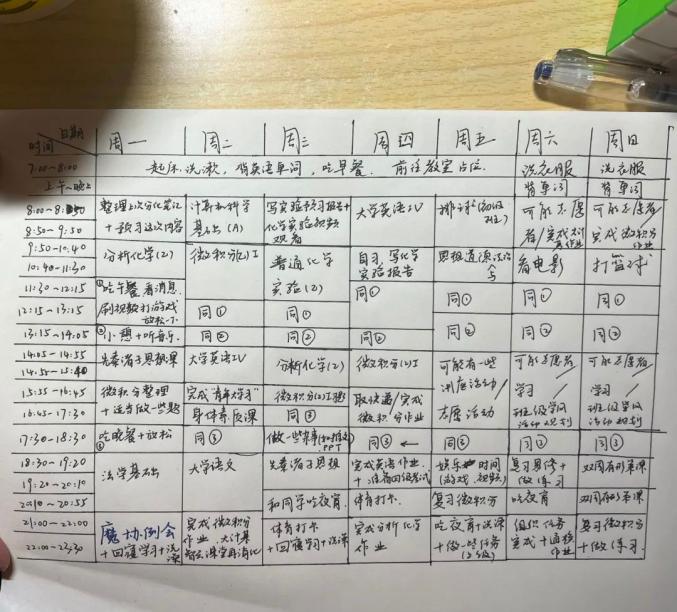 日期
时间
周一 周二 周三 周四 周五 周六 周日
7:00~8:00 起床、洗漱,背英语单词,吃早餐、前往教室占位. 洗衣服 洗衣服
上午~晚上 背单词 背单词
8:00~8:50 整理上次分化笔记 计算机科学 写实验预习报告+ 大学英语IV 排球 可能志愿 可能志愿者/
8:50~9:50 +预习这次内容 基础(A) 化学实验视频 者/完成 完成微积分
观看 作业 作业
9:50~10:40 分析化学(2) 微积分(2)I 普通化学 自习、写化学 思想道德法治 看电影 打篮球
10:40~11:30 实验(2) 实验报告
11:30~12:15 ①吃午餐 看消息 同① 同① 同① 同① 同①
12:15~13:15 刷视频打游戏 同① 同①
放松一下
13:15~14:05 ②小憩+听音乐. 同② 同② 同② 同② 同② 同②
14:05~14:55 先秦诸子思想课 大学英语IV 分析化学(2) 微积分(2)I 可能有一些 可能志愿者 可能志愿者/
14:55~15:40 班团活动/ 学习/ 学习/
15:55~16:45 微积分整理 完成"青年大学习" 微积分(2)I 取快递/完成 志愿活动 班级学风 班级学风
16:45~17:30 +适当做一些题 身体素质课 同③ 微积分作业 活动规划 活动规划
17:30~18:30 ③吃晚餐+放松 同③ 做一些 PPT 同③ ← 同③ 同③ 同③
18:30~19:20 法学基础 大学语文 先秦诸子思想 完成英语作业 娱乐时间 复习 双周有形策课
19:20~20:10 +准备四级考试 (游戏、视频) 做练习
20:10~20:55 和同学吃夜宵 体育打卡. 复习微积分 吃夜宵 双周有形策课
21:00~22:00 魔协例会 完成微积分 体育打卡 完成分析化学 吃夜宵+洗澡 组织任务 复习微积分
22:00~23:30 +回寝学习+洗澡 作业、大计基 +回寝学习+洗澡 作业 +做一些任务 完成 +做练习.